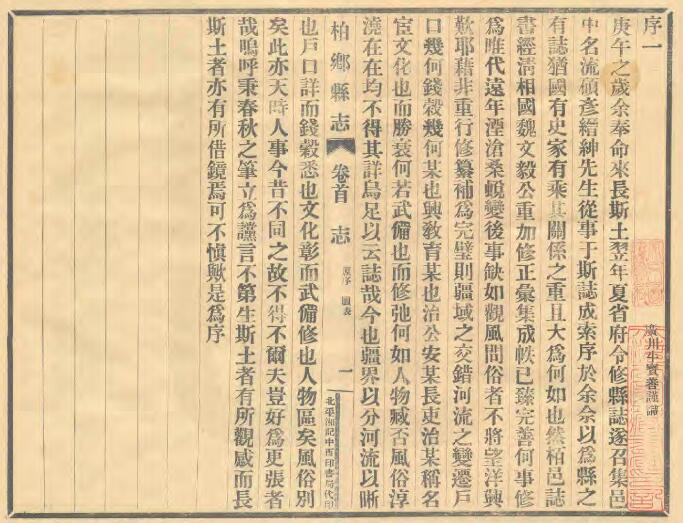 序一
庚午之歲余奉命來長斯土翌年夏省府令修縣誌遂召集邑
中名流碩彥縉紳先生從事于斯誌成索序於余余以為縣之
有誌猶國有史家有乘其關係之重且大為何如也然柏邑誌
書經清相國魏文毅公重加修正彙集成帙已臻完善何事修
為唯代遠年湮滄桑蛻變後事缺如觀風問俗者不將望洋興
歎耶藉非重行修纂補為完璧則疆域之交錯河流之變遷戶
口幾何錢穀幾何某也興教育某也治公安某長吏治某稱名
宦文化也而勝衰何若武備也而修弛何如人物臧否風俗淳
澆在在均不得其詳烏足以云誌哉今也疆界以分河流以晰
柏鄉縣志
卷首
志
原序 圖表
一
北平湘記中西印書局代印
也戶口詳而錢穀悉也文化彰而武備修也人物區矣風俗別
矣此亦天時人事今昔不同之故不得不爾夫豈好為更張者
哉嗚呼秉春秋之筆立為讜言不第生斯土者有所觀感而長
斯土者亦有所借鏡焉可不慎歟是為序